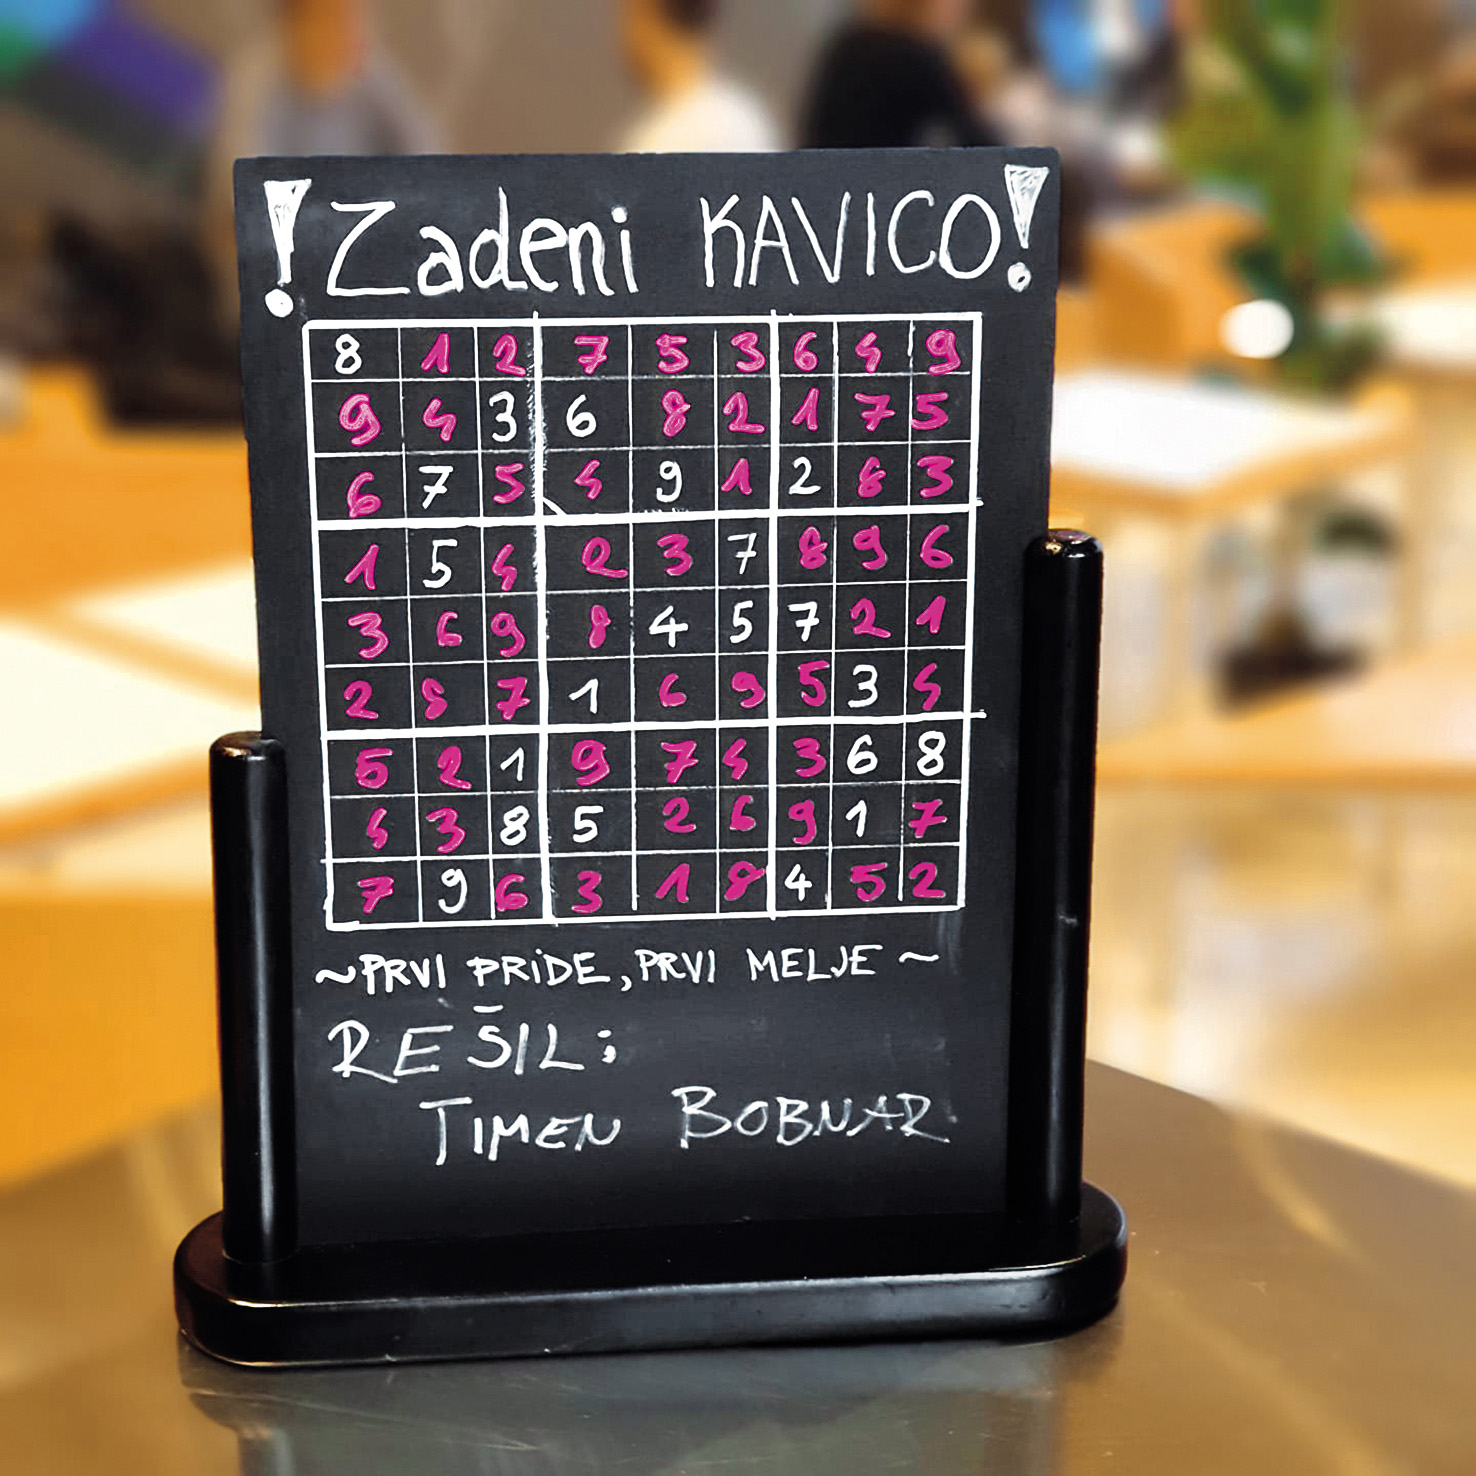 ! Zadeni KAVICO !
8 1 2 7 5 3 6 4 9
9 4 3 6 8 2 1 7 5
6 7 5 4 9 1 2 8 3
1 5 4 2 3 7 8 9 6
3 6 9 8 4 5 7 2 1
2 8 7 1 6 9 5 3 4
5 2 1 9 7 4 3 6 8
4 3 8 5 2 6 9 1 7
7 9 6 3 1 8 4 5 2
~PRVI PRIDE, PRVI MELJE~
REŠIL:
TIMEN BOBNAR